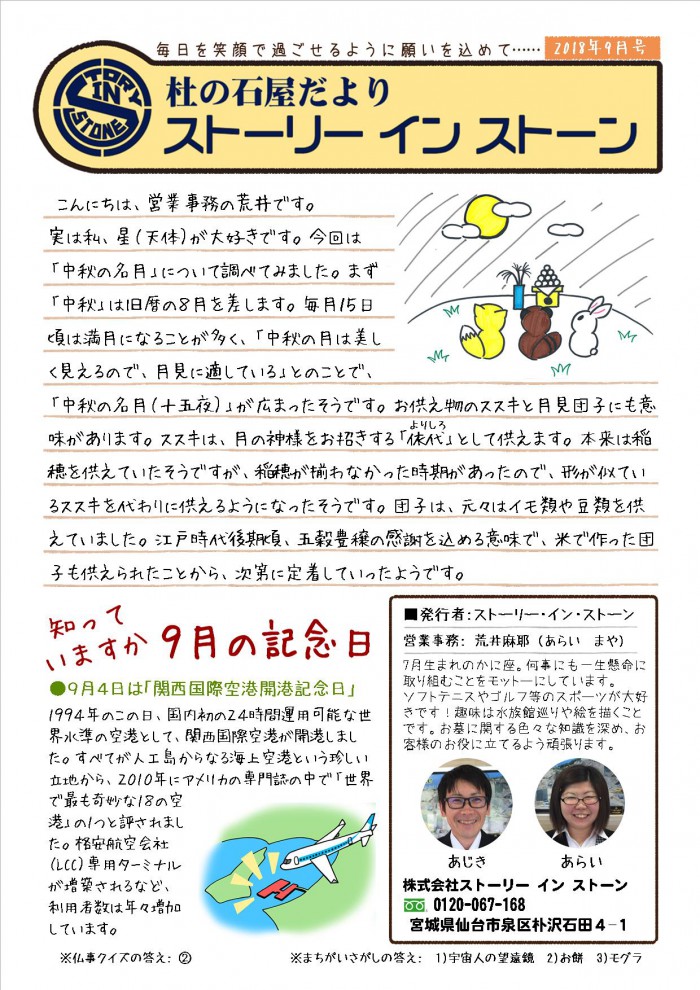 毎日を笑顔で過ごせるように願いを込めて……
2018年9月号
STORY
IN
STONE
杜の石屋だより
ストーリー イン ストーン
こんにちは、営業事務の荒井です。
実は私、星(天体)が大好きです。今回は
「中秋の名月」について調べてみました。まず
「中秋」は旧暦の8月を差します。毎月15日
頃は満月になることが多く、「中秋の月は美し
く見えるので、月見に適している」とのことで、
「中秋の名月(十五夜)」が広まったそうです。お供え物のススキと月見団子にも意
よりしろ
味があります。ススキは、月の神様をお招きする「依代」として供えます。本来は稲
穂を供えていたそうですが、稲穂が揃わなかった時期があったので、形が似てい
るススキを代わりに供えるようになったそうです。団子は、元々はイモ類や豆類を供
えていました。江戸時代後期頃、五穀豊穣の感謝を込める意味で、米で作った団
子も供えられたことから、次第に定着していったようです。
知って
いますか 9月の記念日
●9月4日は「関西国際空港開港記念日」
1994年のこの日、国内初の24時間運用可能な世
界水準の空港として、関西国際空港が開港しまし
た。すべてが人工島からなる海上空港という珍しい
立地から、2010年にアメリカの専門誌の中で「世界
で最も奇妙な18の空
港」の1つと評されまし
た。格安航空会社
(LCC)専用ターミナル
が増築されるなど、
利用者数は年々増加
しています。
■発行者:ストーリー・イン・ストーン
営業事務: 荒井麻耶 (あらい まや)
7月生まれのかに座。何事にも一生懸命に
取り組むことをモットーにしています。
ソフトテニスやゴルフ等のスポーツが大好
きです!趣味は水族館巡りや絵を描くこと
です。お墓に関する色々な知識を深め、お
客様のお役に立てるよう頑張ります。
あじき
あらい
株式会社ストーリー イン ストーン
0120-067-168
宮城県仙台市泉区朴沢石田4-1
※仏事クイズの答え: ②
※まちがいさがしの答え: 1)宇宙人の望遠鏡 2)お餅 3)モグラ